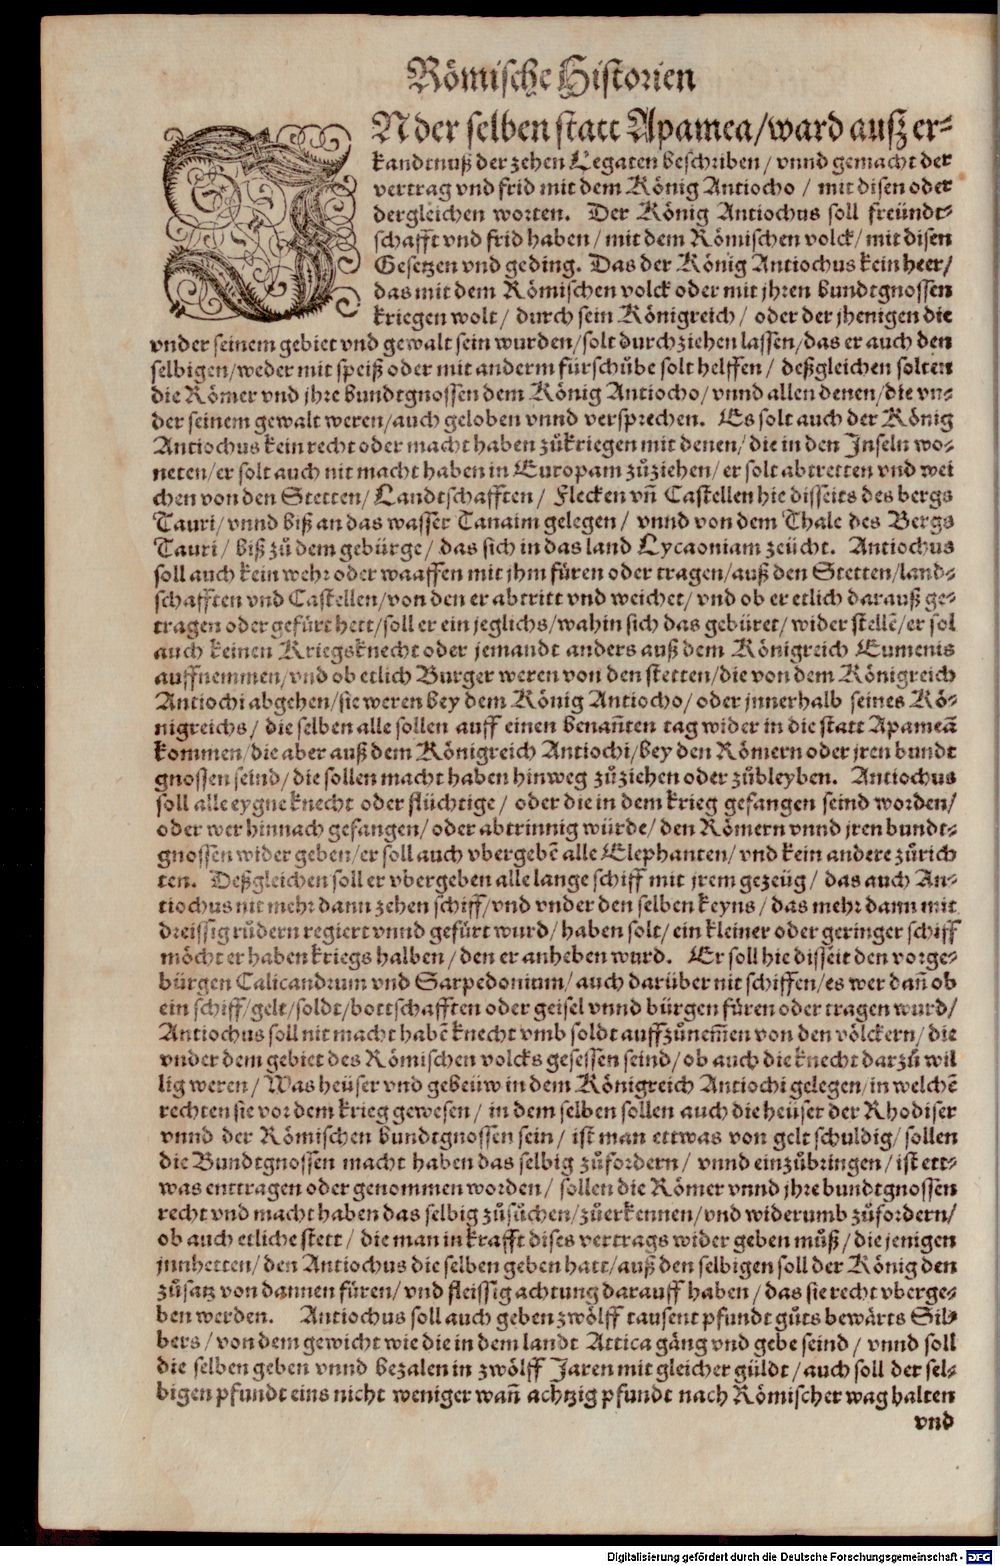 Römische Historien
IN der selben statt Apamea/ward ausz er-
kandtnuß der zehen Legaten beschriben/vnnd gemacht der
vertrag vnd frid mit dem König Antiocho/mit disen oder
dergleichen worten. Der König Antiochus soll freündt-
schafft vnd frid haben/mit dem Römischen volck/mit disen
Gesetzen vnd geding. Das der König Antiochus kein heer/
das mit dem Römischen volck oder mit jhren bundtgnossen
kriegen wolt/durch sein Königreich/oder der jhenigen die
vnder seinem gebiet vnd gewalt sein wurden/solt durchziehen lassen/das er auch den
selbigen/weder mit speiß oder mit anderm fürschübe solt helffen/deßgleichen solten
die Römer vnd jhre bundtgnossen dem König Antiocho/vnnd allen denen/die vn-
der seinem gewalt weren/auch geloben vnnd versprechen. Es solt auch der König
Antiochus kein recht oder macht haben zůkriegen mit denen/die in den Inseln wo-
neten/er solt auch nit macht haben in Europam zůziehen/er solt abtretten vnd wei
chen von den Stetten/Landtschafften/Flecken vñ Castellen hie disseits des bergs
Tauri/vnnd biß an das wasser Tanaim gelegen/vnnd von dem Thale des Bergs
Tauri/biß zů dem gebürge/das sich in das land Lycaoniam zeücht. Antiochus
soll auch kein wehr oder waaffen mit jhm füren oder tragen/auß den Stetten/land-
schafften vnd Castellen/von den er abtritt vnd weichet/vnd ob er etlich darauß ge-
tragen oder gefürt hett/soll er ein jeglichs/wahin sich das gebüret/wider stellē/er sol
auch keinen Kriegsknecht oder jemandt anders auß dem Königreich Eumenis
auffnemmen/vnd ob etlich Burger weren von den stetten/die von dem Königreich
Antiochi abgehen/sie weren bey dem König Antiocho/oder jnnerhalb seines Kö-
nigreichs/die selben alle sollen auff einen benañten tag wider in die statt Apameā
kommen/die aber auß dem Königreich Antiochi/bey den Römern oder jren bundt
gnossen seind/die sollen macht haben hinweg zůziehen oder zůbleyben. Antiochus
soll alle eygne knecht oder flüchtige/oder die in dem krieg gefangen seind worden/
oder wer hinnach gefangen/oder abtrinnig würde/den Römern vnnd jren bundt-
gnossen wider geben/er soll auch vbergebē alle Elephanten/vnd kein andere zůrich
ten. Deßgleichen soll er vbergeben alle lange schiff mit jrem gezeüg/das auch An-
tiochus nit mehr dann zehen schiff/vnd vnder den selben keyns/das mehr dann mit
dreissig růdern regiert vnnd gefürt wurd/haben solt/ein kleiner oder geringer schiff
möcht er haben kriegs halben/den er anheben wurd. Er soll hie disseit den vorge-
bürgen Calicandrum vnd Sarpedonium/auch darüber nit schiffen/es wer dañ ob
ein schiff/gelt/soldt/bottschafften oder geisel vnnd bürgen füren oder tragen wurd/
Antiochus soll nit macht habē knecht vmb soldt auffzůnem̃en von den völckern/die
vnder dem gebiet des Römischen volcks gesessen seind/ob auch die knecht darzů wil
lig weren/Was heüser vnd gebeüw in dem Königreich Antiochi gelegen/in welchē
rechten sie vor dem krieg gewesen/in dem selben sollen auch die heüser der Rhodiser
vnnd der Römischen bundtgnossen sein/ist man ettwas von gelt schuldig/sollen
die Bundtgnossen macht haben das selbig zůfordern/vnnd einzůbringen/ist ett-
was enttragen oder genommen worden/sollen die Römer vnnd jhre bundtgnossen
recht vnd macht haben das selbig zůsůchen/zůerkennen/vnd widerumb zůfordern/
ob auch etliche stett/die man in krafft dises vertrags wider geben můß/die jenigen
jnnhetten/den Antiochus die selben geben hatt/auß den selbigen soll der König den
zůsatz von dannen füren/vnd fleissig achtung darauff haben/das sie recht vberge-
ben werden. Antiochus soll auch geben zwölff tausent pfundt gůts bewärts Sil-
bers/von dem gewicht wie die in dem landt Attica gäng vnd gebe seind/vnnd soll
die selben geben vnnd bezalen in zwölff Jaren mit gleicher güldt/auch soll der sel-
bigen pfundt eins nicht weniger wañ achtzig pfundt nach Römischer wag halten
vnd
Digitalisierung gefördert durch die Deutsche Forschungsgemeinschaft - DFG